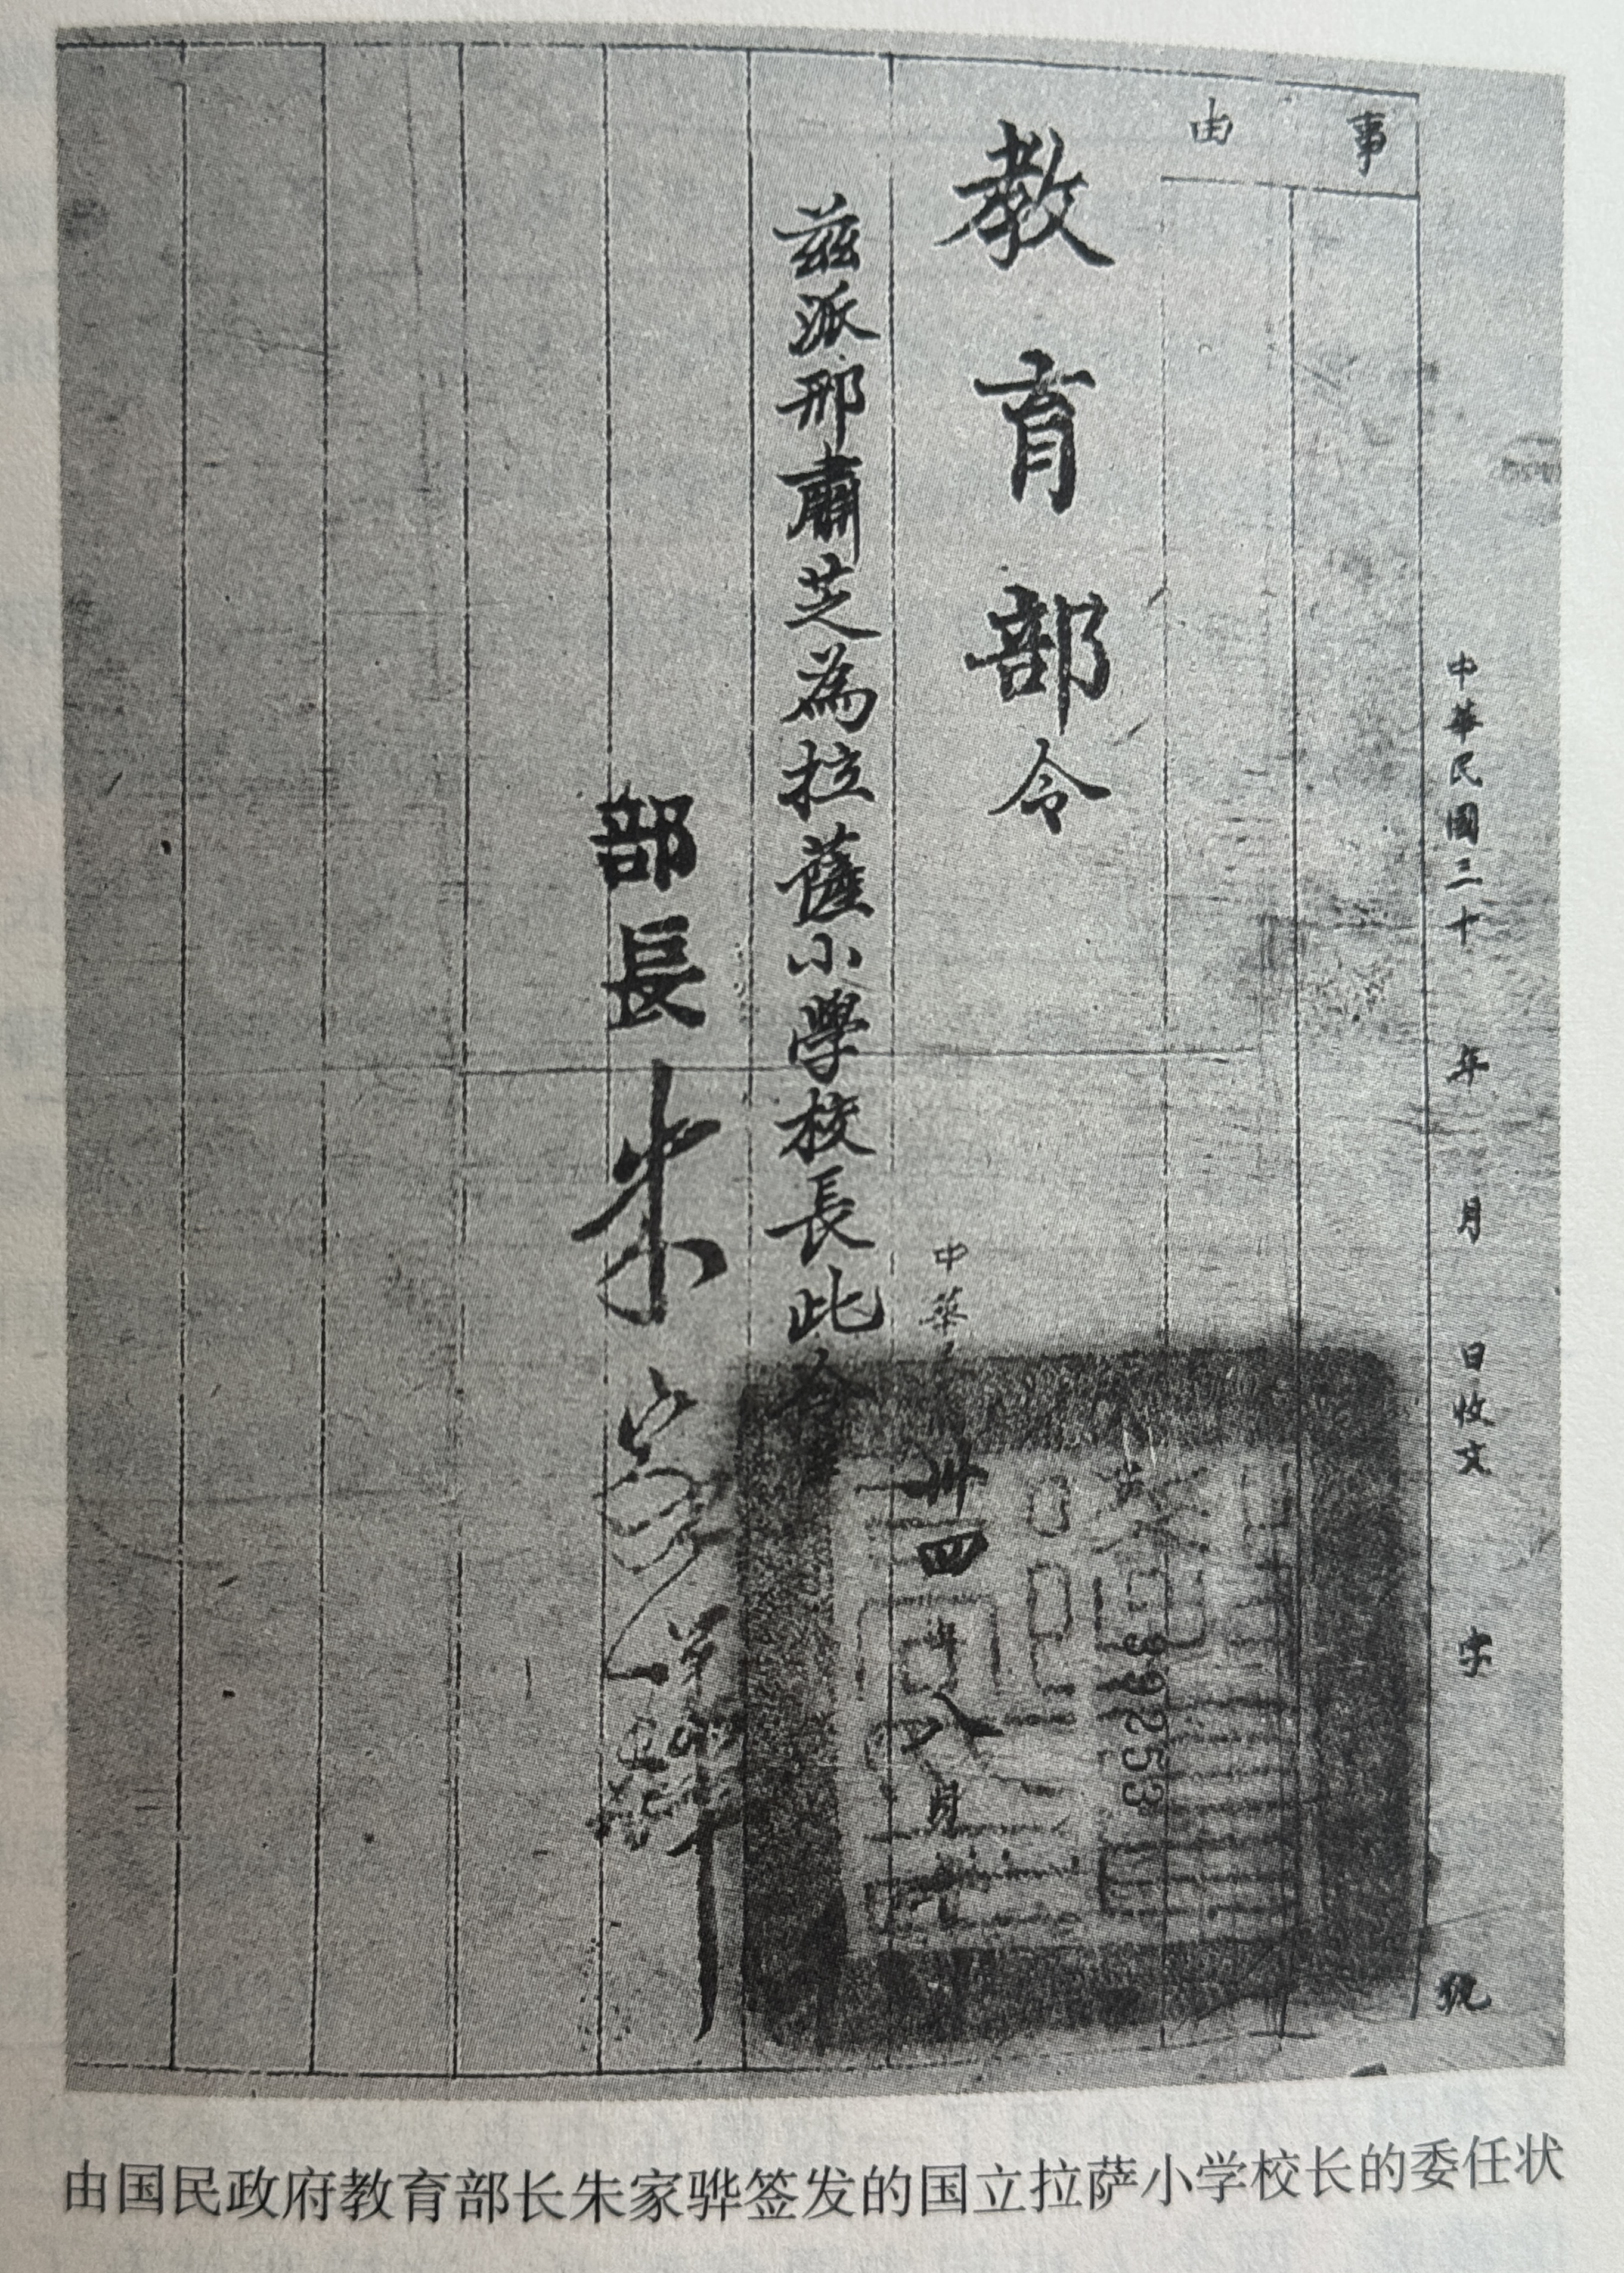 中華民國三十　年　月　日收文　字　號
事由
教育部令
茲派邢肅芝為拉薩小學校長此令
中華
卅四年八月
39253
部長朱家驊
由国民政府教育部长朱家骅签发的国立拉萨小学校长的委任状